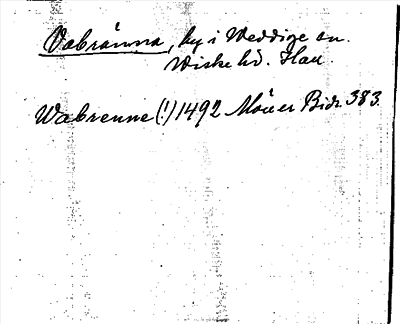 Vabränna, by i Weddige sn.
Wiske hd. Hall.
Wabrenne (!) 1492 Möller Bidr 383.